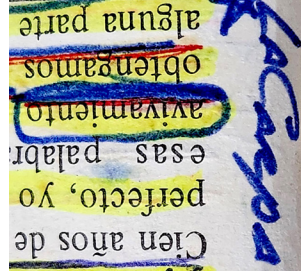 Cien años de
perfecto, yo
esas palabr
avivamiento
obtengamos
alguna parte